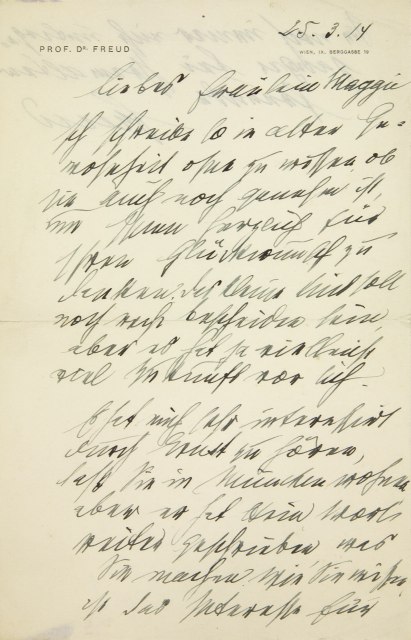 25. 3. 14
PROF. DR. FREUD
WIEN, IX., BERGGASSE 19
Liebes Fräulein Maggie
Ich schreibe so in alter Ge-
wohnheit ohne zu wissen ob
sie auch noch genehm ist,
um Ihnen herzlich für
Ihren Glückwunsch zu
danken. Das kleine Kind soll
noch recht bescheiden sein,
aber es hat ja vielleicht
viel Zukunft vor sich.
Es hat mich sehr interessirt
durch Ernst zu hören,
daß Sie in München wohnen
aber er hat kein Wort
weiter geschrieben was
Sie machen. Wie Sie wissen
ist das Interesse für